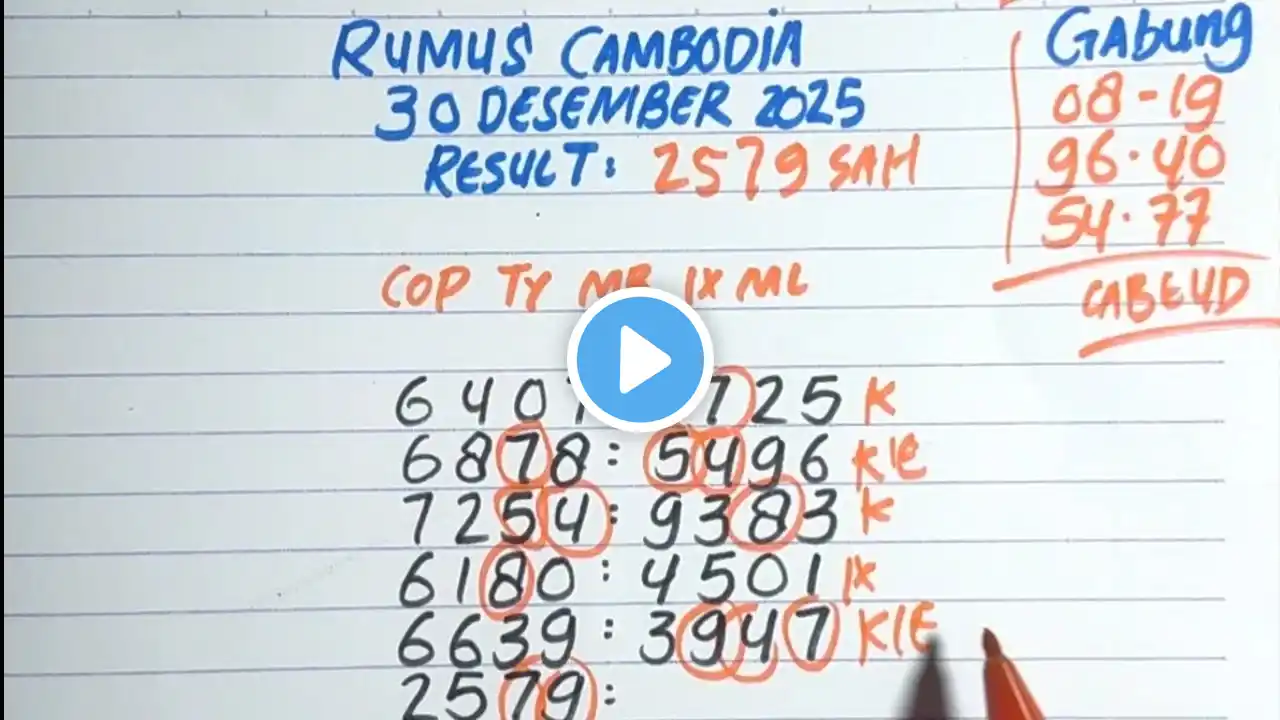 RUMUS CAMBODIA
30 DESEMBER 2025
RESULT: 2579 SAH
Gabung
08-19
96.40
54.77
CABEUD
COP TY MB IX ML
6407 725 K
6878: 5496 KIE
7254: 9383 K
6180: 4501 IX
6639: 3947 KIE
2579: